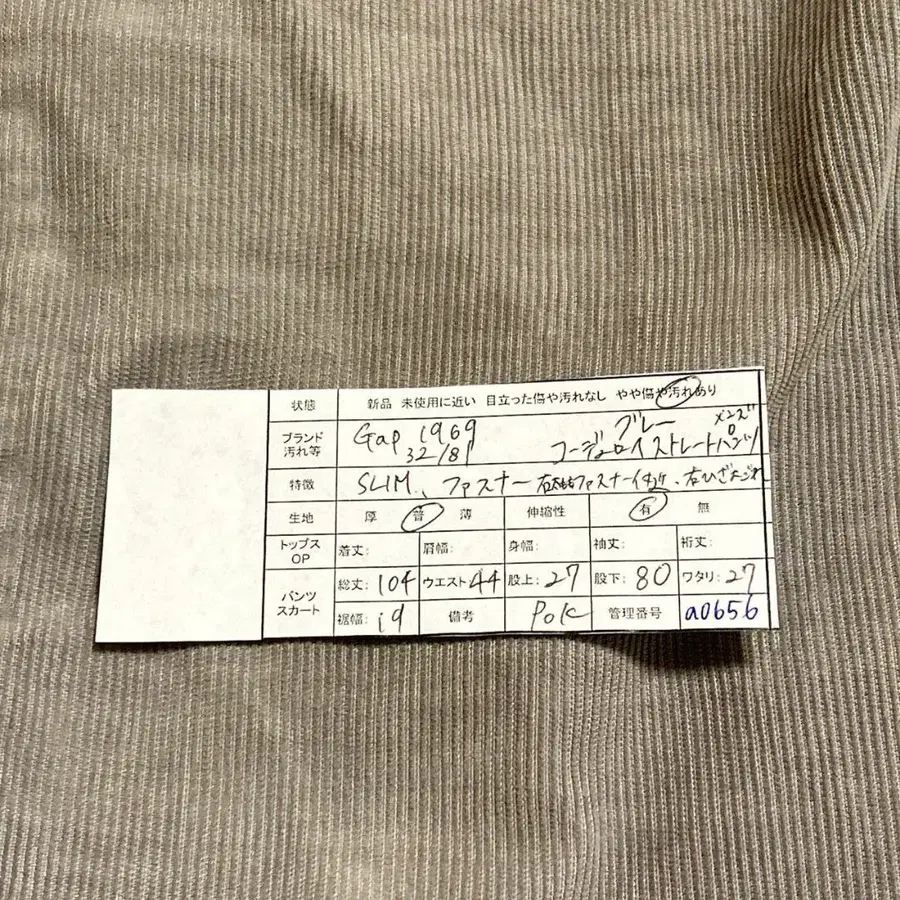 状態 新品 未使用に近い 目立った傷や汚れなし やや傷や汚れあり
ブランド 汚れ等 Gap 1969 32/81 グレー メンズ コーデュロイストレートパンツ
特徴 SLIM、ファスナー ファスナー 右ひざ
生地 厚 普 薄 伸縮性 有 無
トップス OP 着丈: 肩幅: 身幅: 袖丈: 裄丈:
パンツ スカート 総丈: 104 ウエスト 44 股上: 27 股下: 80 ワタリ: 27
裾幅: 19 備考 POK 管理番号 a0656